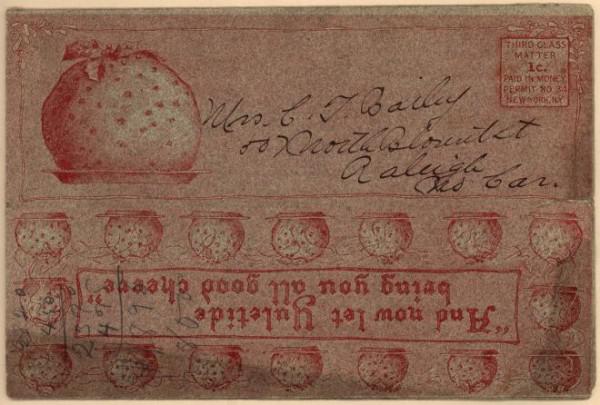 THIRD CLASS
MATTER
1c.
PAID IN MONEY
PERMIT NO. 34
NEW YORK, N.Y.
Mrs. C. T. Bailey
North Blount St
Raleigh
No Car.
"And now let Yuletide
bring you all good cheere"